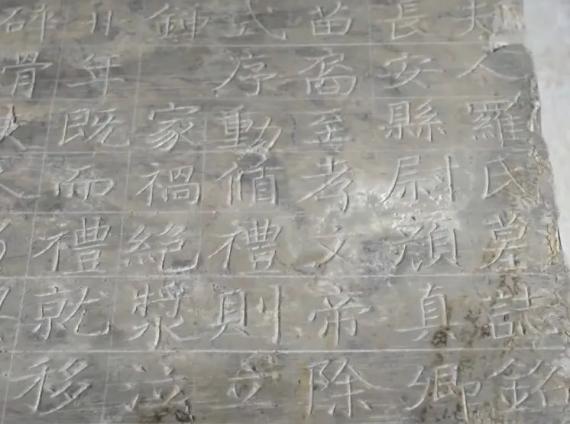 夫人羅氏墓誌銘
長安縣尉顏真卿
苗裔至孝文帝除
式序動循禮則
鍾家禍絕漿泣
年既而禮就移
骨